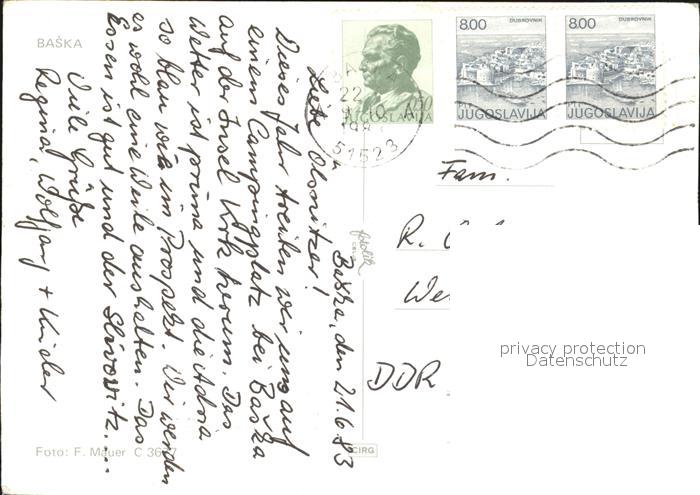 BAŠKA
Baška, den 21.6.83
Liebe Olsnitzer!
Dieses Jahr treiben wir uns auf
einem Campingplatz bei Baška
auf der Insel Krk herum. Das
Wetter ist prima und die Adria
so blau wie im Prospekt. Wir werden
es wohl eine Weile aushalten. Das
Essen ist gut und der Slivovitz....
Viele Grüße
Regina, Wolfgang + Kinder
Foto: F. Mauer C 36
fotolik
CIRG
JUGOSLAVIJA
8.00 DUBROVNIK
JUGOSLAVIJA
8.00 DUBROVNIK
JUGOSLAVIJA
22
51523
Fam.
R.
We
DDR
privacy protection
Datenschutz